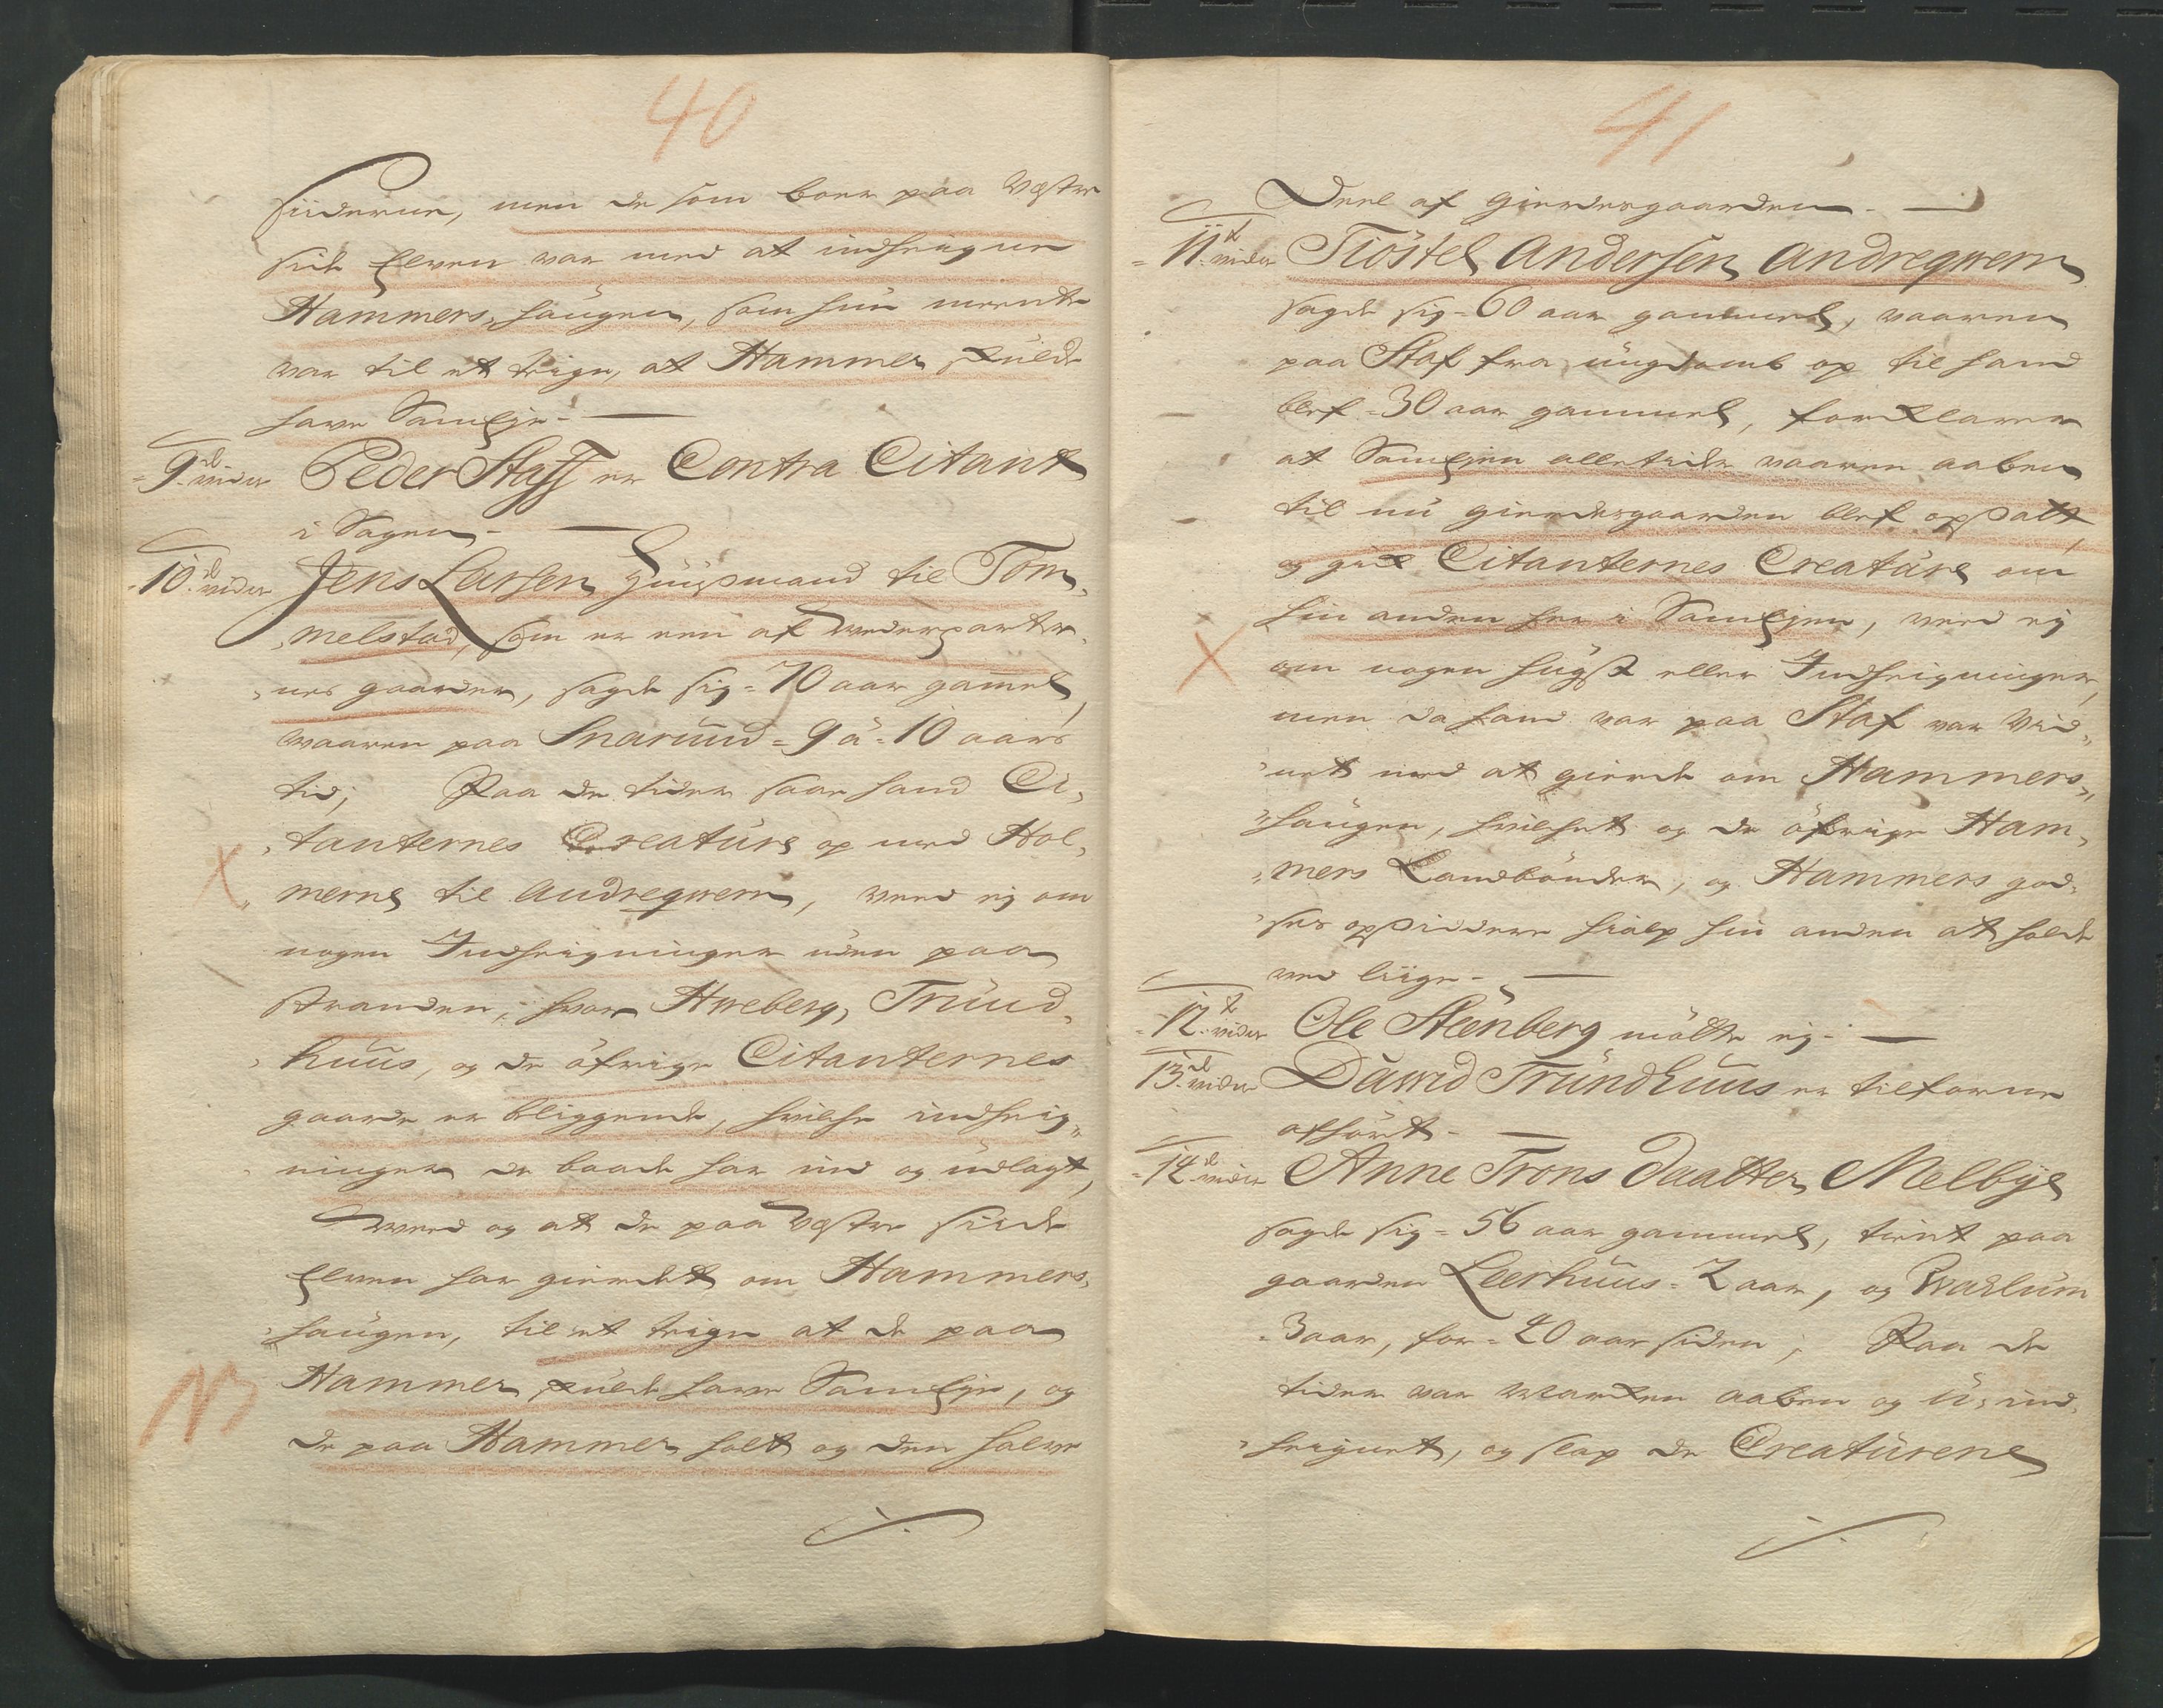 40
siiderne, men de som boer paa Vestre
side Elven var med at indheigne
Hammers, haugen, som hun meente
var til et teign, at Hammer skulde
have Samejje -
9de vidn Peder Staff er Contra Citant
i Sagen -
10de vidn Jens Larsen Huusmand til Tom,
melstad, som er een af wederparter,
nes gaarder, sagde sig = 70 aar gamel,
waaren paa Snarüud = 9 á = 10 aars
tid; Paa de tider saae hand Ci,
tanternes Creaturs op med Hol,
merne til Andreqwern, veed ej om
nogen Indheigninger uden paa
stranden, hvor Hweberg, Truud,
huus, og de øfrige Citanternes
gaarde er bliggende, hvilke indheig,
ninger de baade har ind og udlagt,
weed og at de paa Vestre siide
Elven har gierdet om Hammers,
haugen, til et teign at de paa
NB Hammer skulde have Samejje, og
de paa Hammer holt og den halve
41
Deel af gierdesgaarden -
11te vidn Tiøstel Andersen Andreqwern
sagde sig = 60 aar gammel, vaaren
paa Staf fra ungdomb op til hand
blef = 30 aar gammel, forklarer
at Samejjen alletider vaaren aaben
til nu gierdesgaarden blef opsatt,
og gik Citanternes Creature om
hin anden her i Samejjen, veed ej
om nogen hugst eller Indheigninger,
men da hand var paa Staf var Vid,
net med at gierde om Hammers,
haugen, hvilket og de øfrige Ham,
mers Landbönder, og Hammers god,
ses opsiddere hialp hin anden at holde
ved liige -
12te vidn Ole Steenberg mötte ej -
13de vidn Dawid Trundhuus er tilforne
afhørt -
14de vidn Anne Trons Daatter Melbye
sagde sig = 56 aar gammel, tient paa
gaarden Leerhuus = 2 aar, og Warlum
= 3 aar, for = 20 aar siden; Paa de
tider var Marken aaben og u, ind,
heignet, og slap de Creaturene